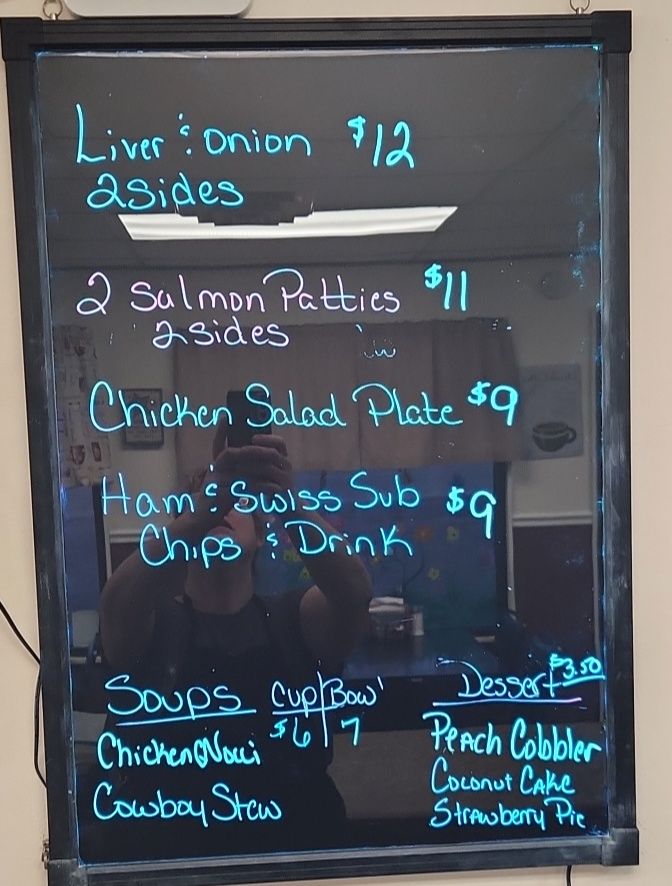 Liver & Onion $12
2 Sides
2 Salmon Patties $11
2 Sides
Chicken Salad Plate $9
Ham & Swiss Sub $9
Chips & Drink
Soups Cup/Bowl
$6/7
Chicken Gnocci
Cowboy Stew
Dessert $3.50
Peach Cobbler
Coconut Cake
Strawberry Pie